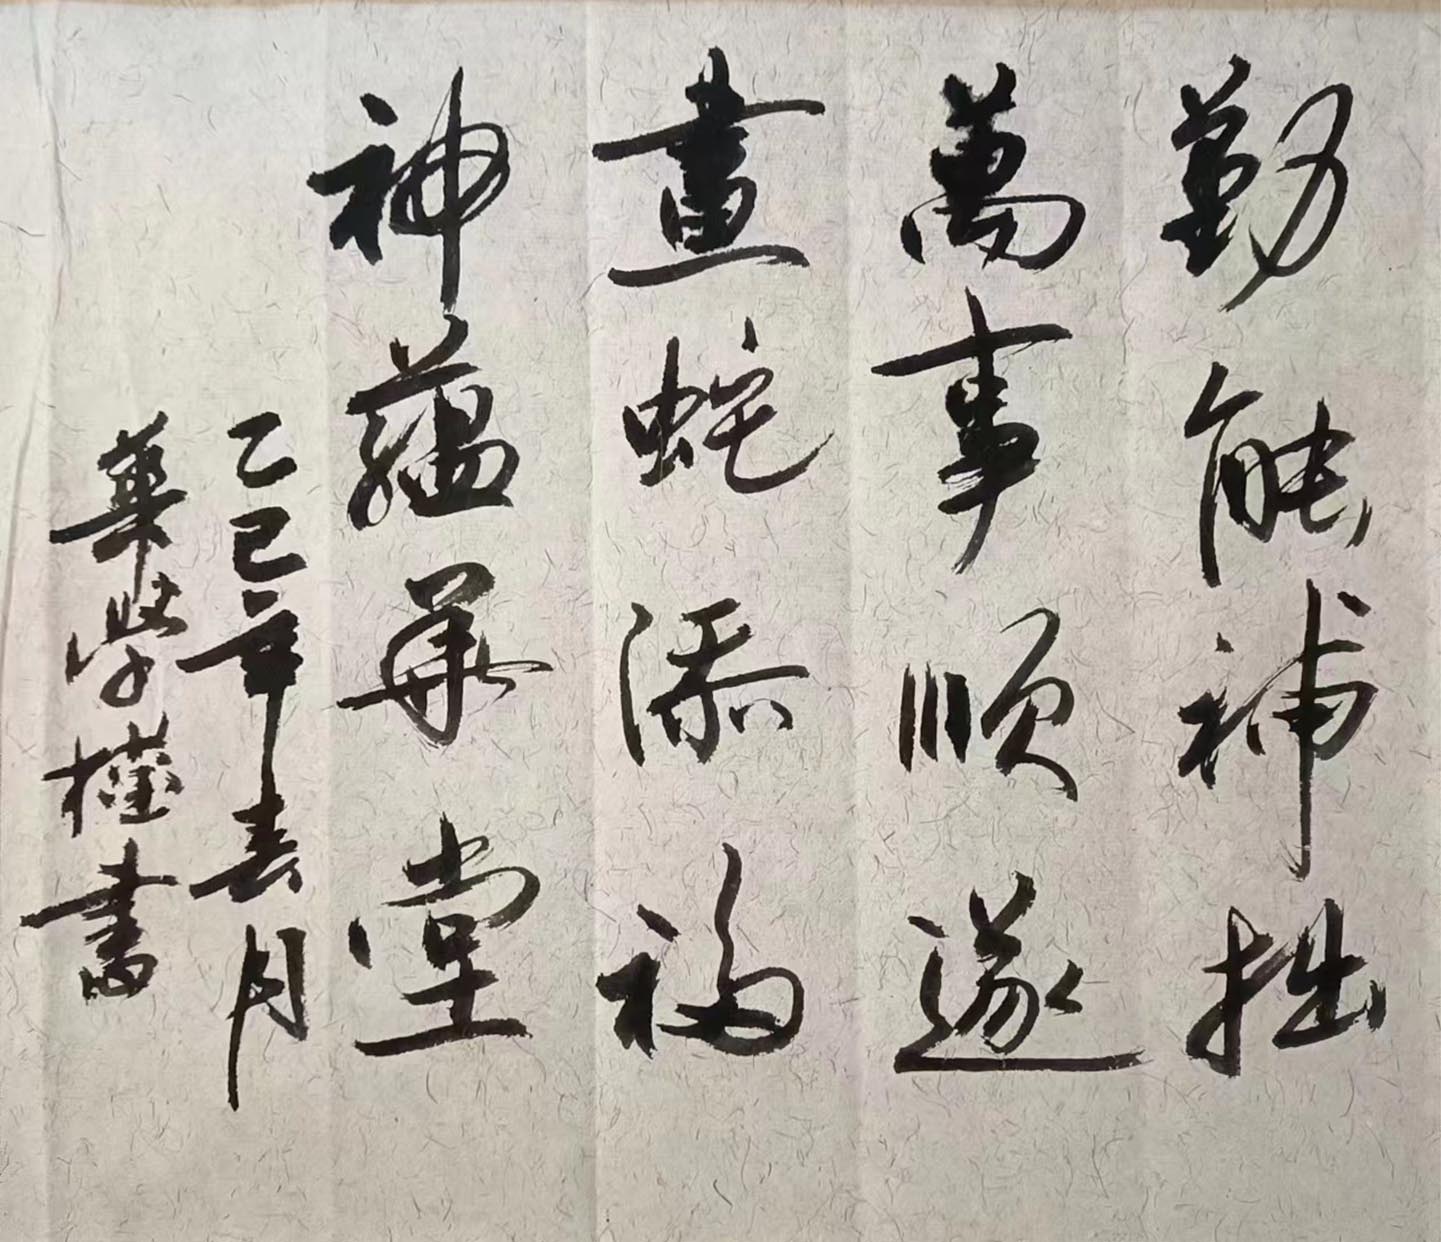 勤能補拙
萬事順遂
畫蛇添福
神蘊華堂
乙巳年春月
華學權書